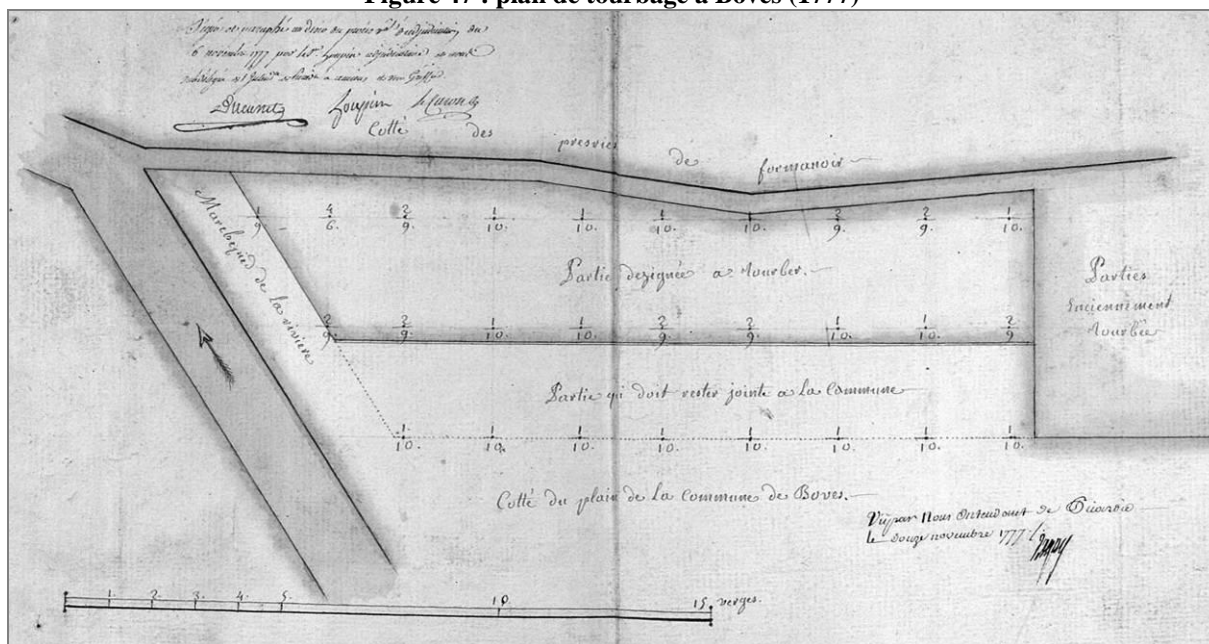 Figure 47 : plan de tourbage à Boves (1777)
Signé et paraphé au désir du procès d'adjudication du
6 novembre 1777 par adjudicataire et nous
Ducanel Loupin
Cotté des presries de formanoir
Marchepied de la riviere
1/9 4/6 2/9 1/10. 1/10. 1/10. 1/10. 2/9. 2/9. 1/10.
Partie dezignée a tourber.
Parties
Enciennement
tourbée
2/9 2/9 1/10. 1/10. 2/9. 2/9. 1/10. 1/10. 2/9
Partie qui doit rester jointe a La Commune
1/10. 1/10. 1/10. 1/10. 1/10. 1/10. 1/10. 1/10.
Cotté du plain de La Commune de Boves.
Vu par Nous Intendant de Picardie
le douze novembre 1777
1. 2. 3. 4. 5. 10. 15 verges.